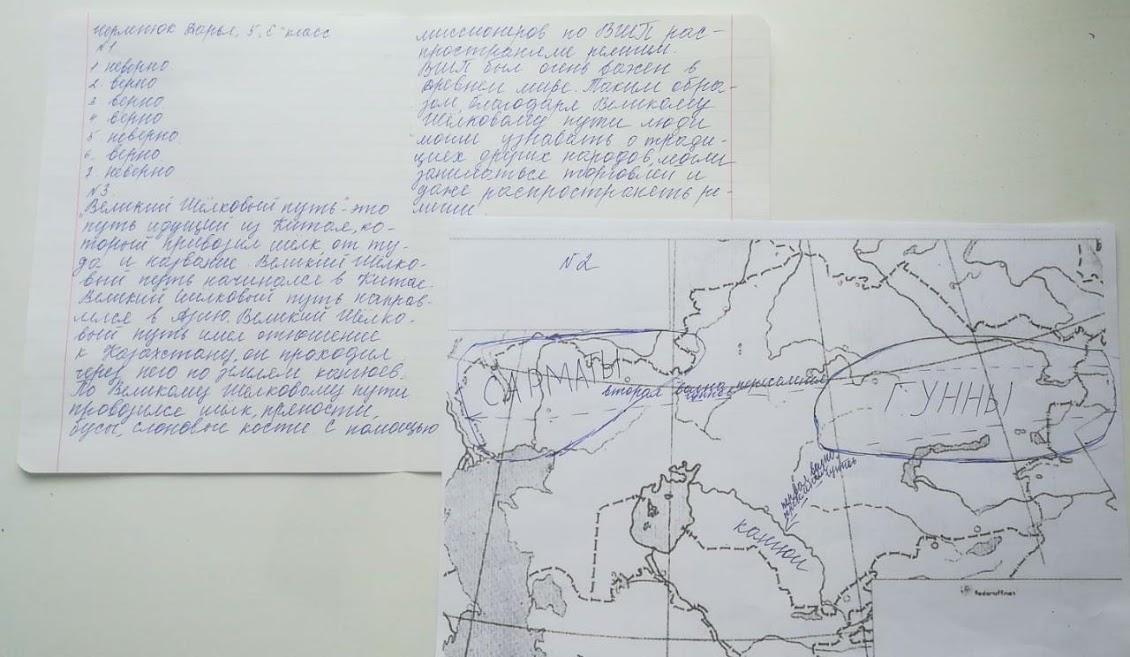 Дарья, 5 "Б" класс
№1
1. неверно
2. верно
3. верно
4. верно
5. неверно
6. верно
7. неверно
№3
"Великий Шёлковый путь"- это
путь идущий из Китая, ко-
торый привозил шелк от ту-
да и название. Великий Шёлко-
вый путь начинался в Китае.
Великий Шелковый путь направ-
лялся в Азию. Великий Шёлко-
вый путь имел отношение
к Казахстану, он проходил
через него по землям кангюев.
По Великому Шёлковому пути
провозился шелк, пряности,
бусы, слоновые кости с помощью
миссионеров по ВШП рас-
пространяли религии.
ВШП был очень важен в
древнем мире. Таким обра-
зом, благодаря Великому
Шёлковому пути люди
могли узнавать о тради-
циях других народов, могли
заниматься торговлей и
даже распространять ре-
лигии.
№2
САРМАТЫ
вторая волна переселения
гуннов
ГУННЫ
первая волна
переселения гуннов
кангюи